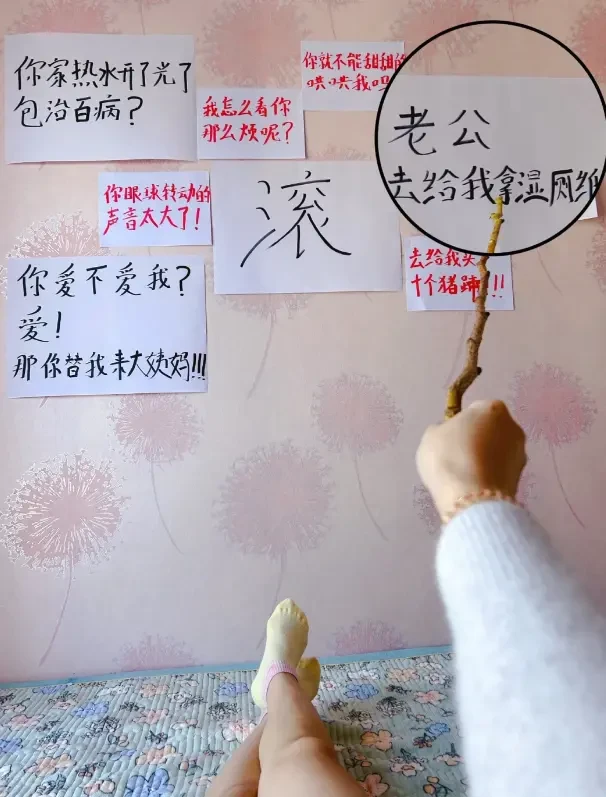 你家热水开了光了
包治百病？
你就不能甜甜的
哄哄我吗
我怎么看你
那么烦呢？
老公
去给我拿湿厕纸
你眼球转动的
声音太大了！
滚
去给我买
十个猪蹄!!!
你爱不爱我？
爱！
那你替我来大姨妈!!!